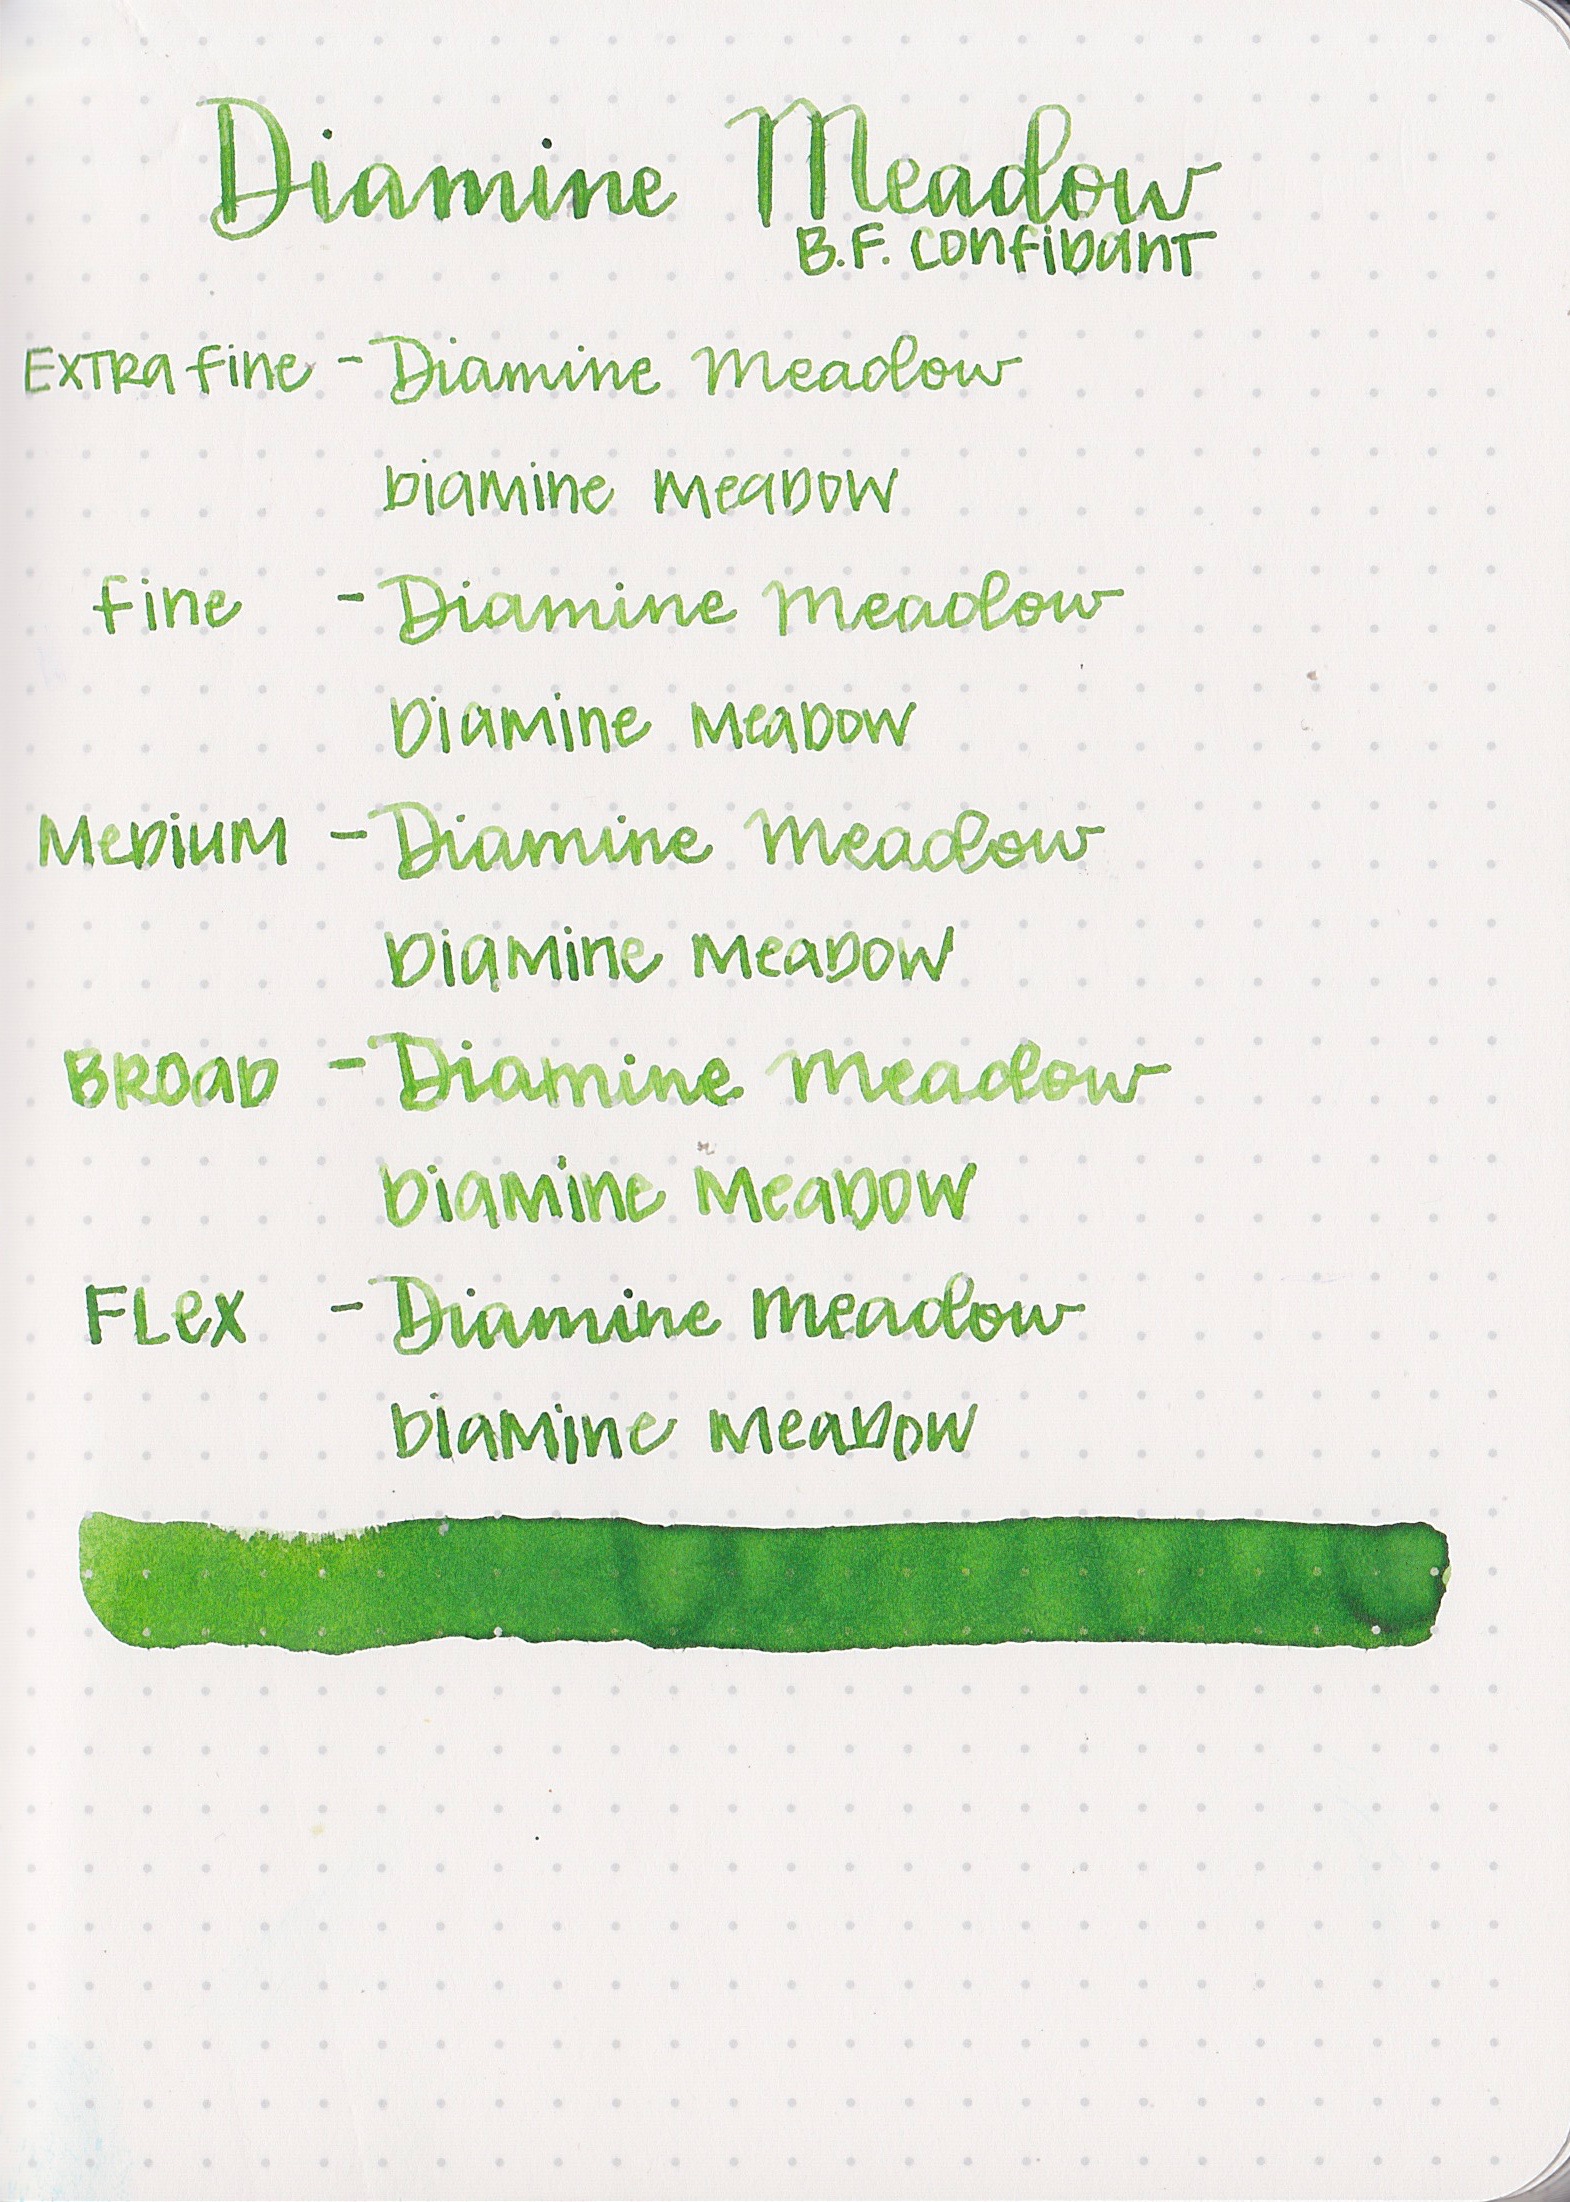 Diamine Meadow
B.F. Confidant
Extra Fine - Diamine Meadow
Diamine Meadow
Fine - Diamine Meadow
Diamine Meadow
Medium - Diamine Meadow
Diamine Meadow
Broad - Diamine Meadow
Diamine Meadow
Flex - Diamine Meadow
Diamine Meadow